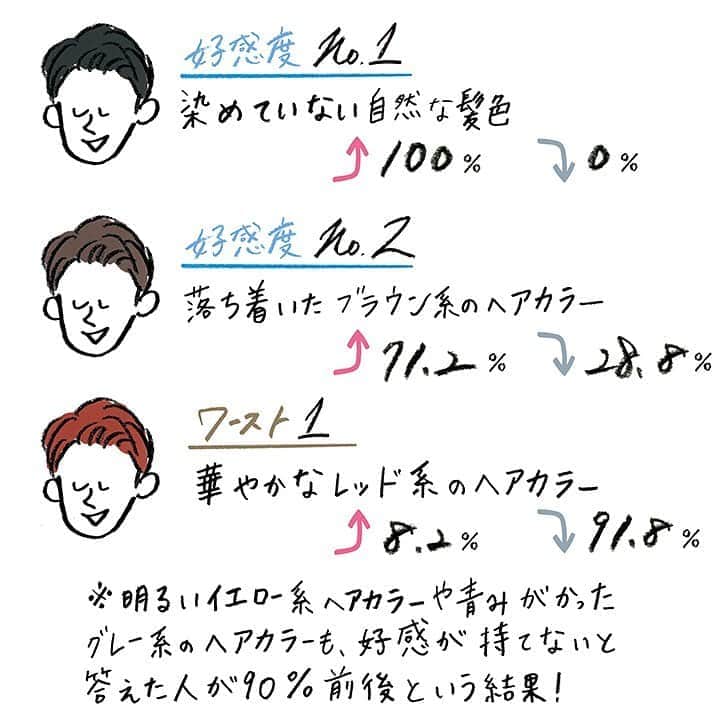 好感度 No.1
染めていない自然な髪色
100% 0%
好感度 No.2
落ち着いたブラウン系のヘアカラー
71.2% 28.8%
ワースト1
華やかなレッド系のヘアカラー
8.2% 91.8%
※明るいイエロー系ヘアカラーや青みがかった
グレー系のヘアカラーも、好感が持てないと
答えた人が90%前後という結果!